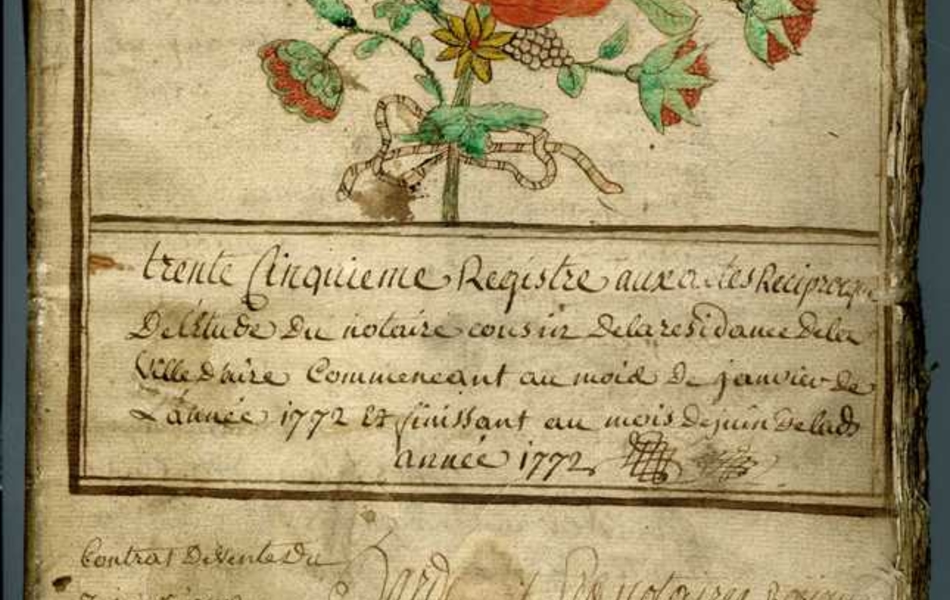 trente Cinquieme Registre aux actes Reciproque
De l'Etude Du notaire cousin de la residance de la
Ville d'aire Commenceant au mois De janvier de
L'année 1772 Et finissant au mois de juin de lad
année 1772
Contrat De Vente Du
notaires